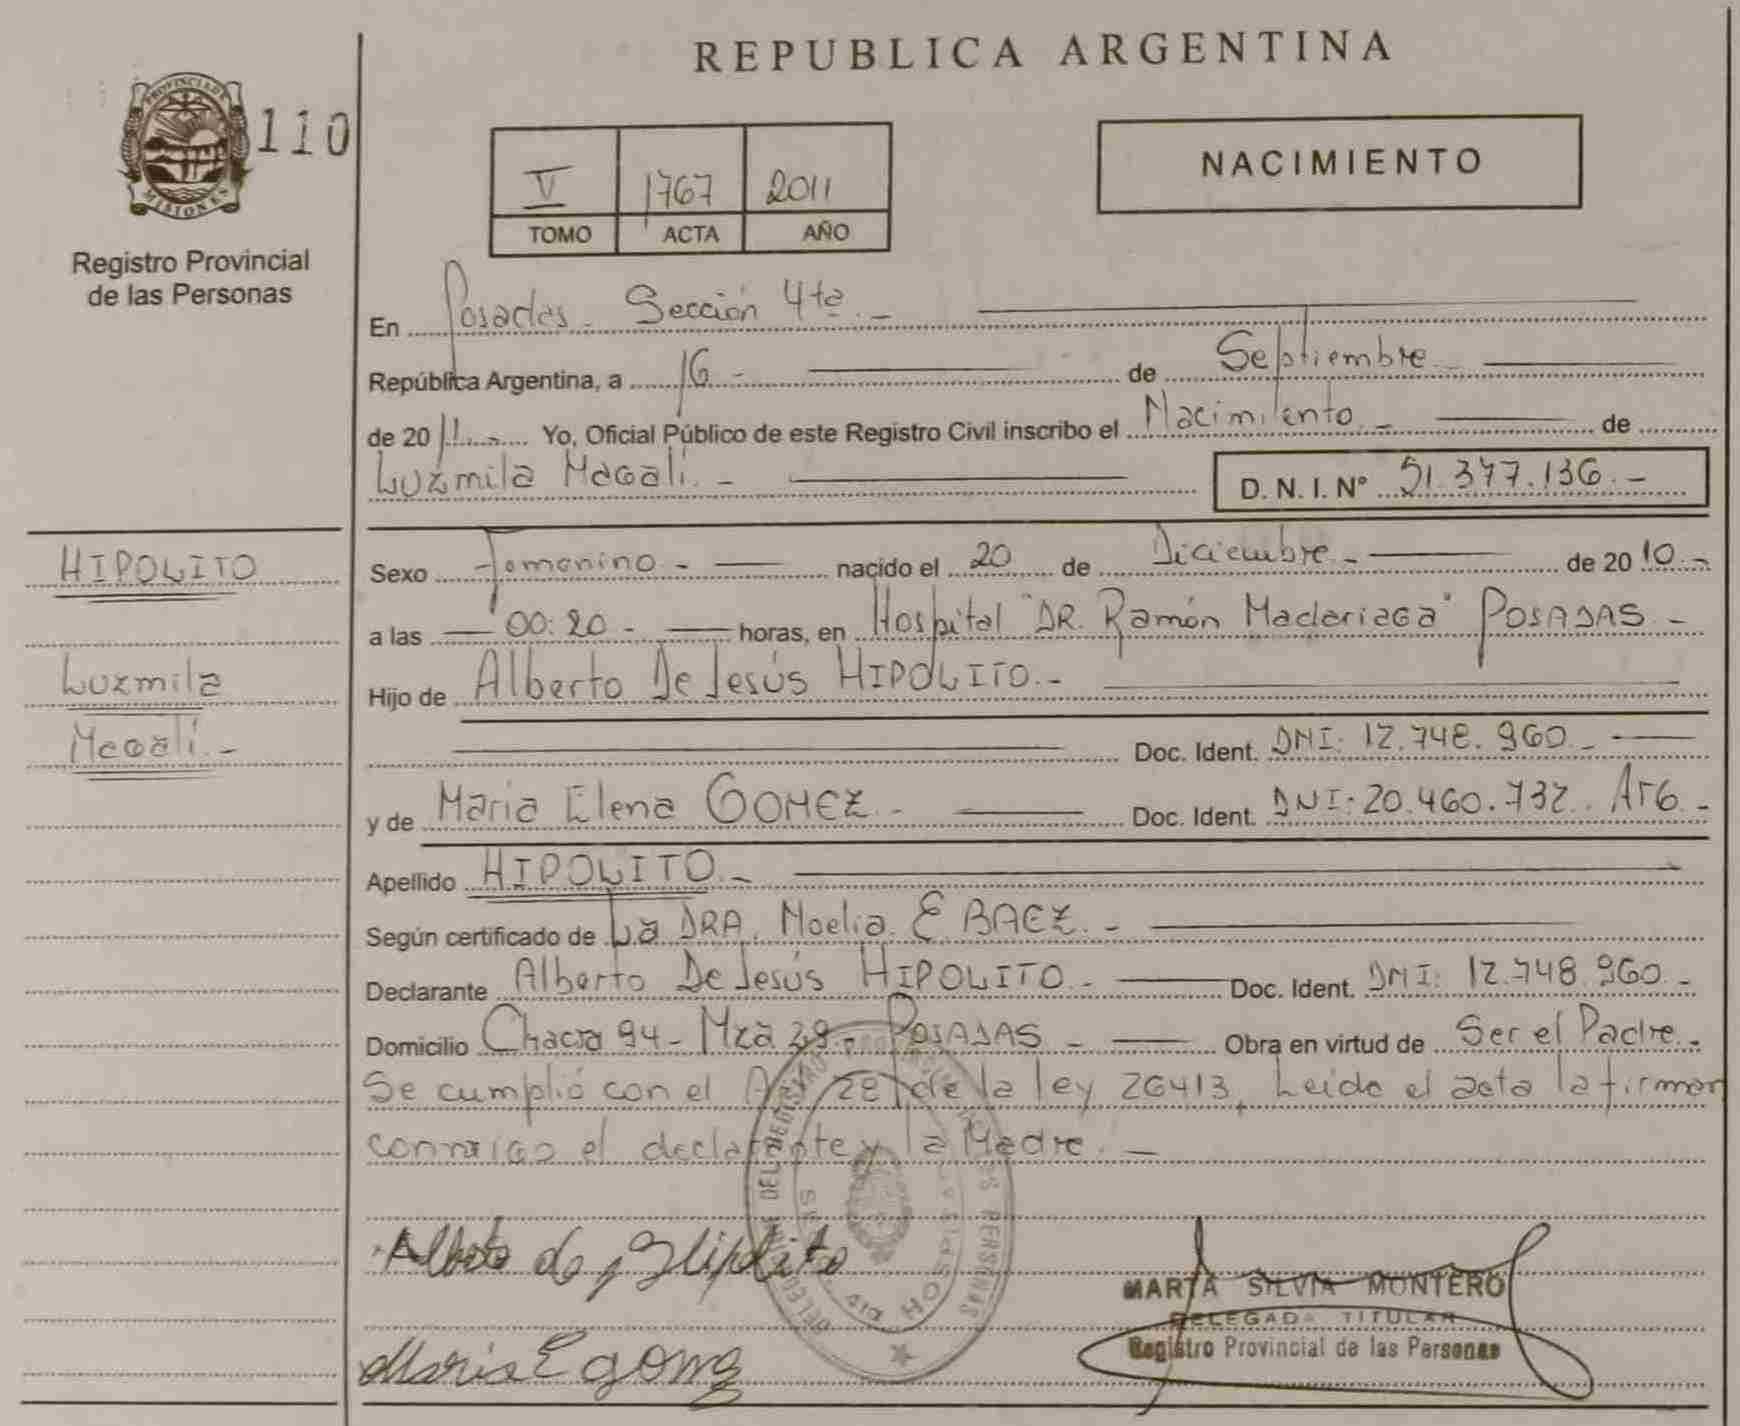 REPUBLICA ARGENTINA
PROVINCIA DE
MISIONES
110
Registro Provincial
de las Personas
V 1767 2011
TOMO ACTA AÑO
NACIMIENTO
En Posadas - Sección 4ta. -
República Argentina, a 16 - de Septiembre -
de 2011.- Yo, Oficial Público de este Registro Civil inscribo el Nacimiento. - de
Luzmila Magalí. - D. N. I. N° 51.377.136. -
HIPOLITO
Luzmila
Magalí. -
Sexo Femenino - nacido el 20 de Diciembre - de 2010.-
a las 00:20 - horas, en Hospital "DR. Ramón Madariaga" POSADAS -
Hijo de Alberto De Jesús HIPOLITO. -
Doc. Ident. DNI: 12.748.960. -
y de Maria Elena GOMEZ. - Doc. Ident. DNI: 20.460.732. Arg. -
Apellido HIPOLITO. -
Según certificado de La DRA. Noelia E BAEZ. -
Declarante Alberto De Jesús HIPOLITO. - Doc. Ident. DNI: 12.748.960. -
Domicilio Chacra 94 - Mza 29 - POSADAS - Obra en virtud de Ser el Padre. -
Se cumplió con el Art 28 de la ley 26413, Leida el acta la firman
conmigo el declarante y la Madre. -
Alberto de J Hipolito
MARTA SILVIA MONTERO
DELEGADA TITULAR
Registro Provincial de las Personas
Maria E Gomez